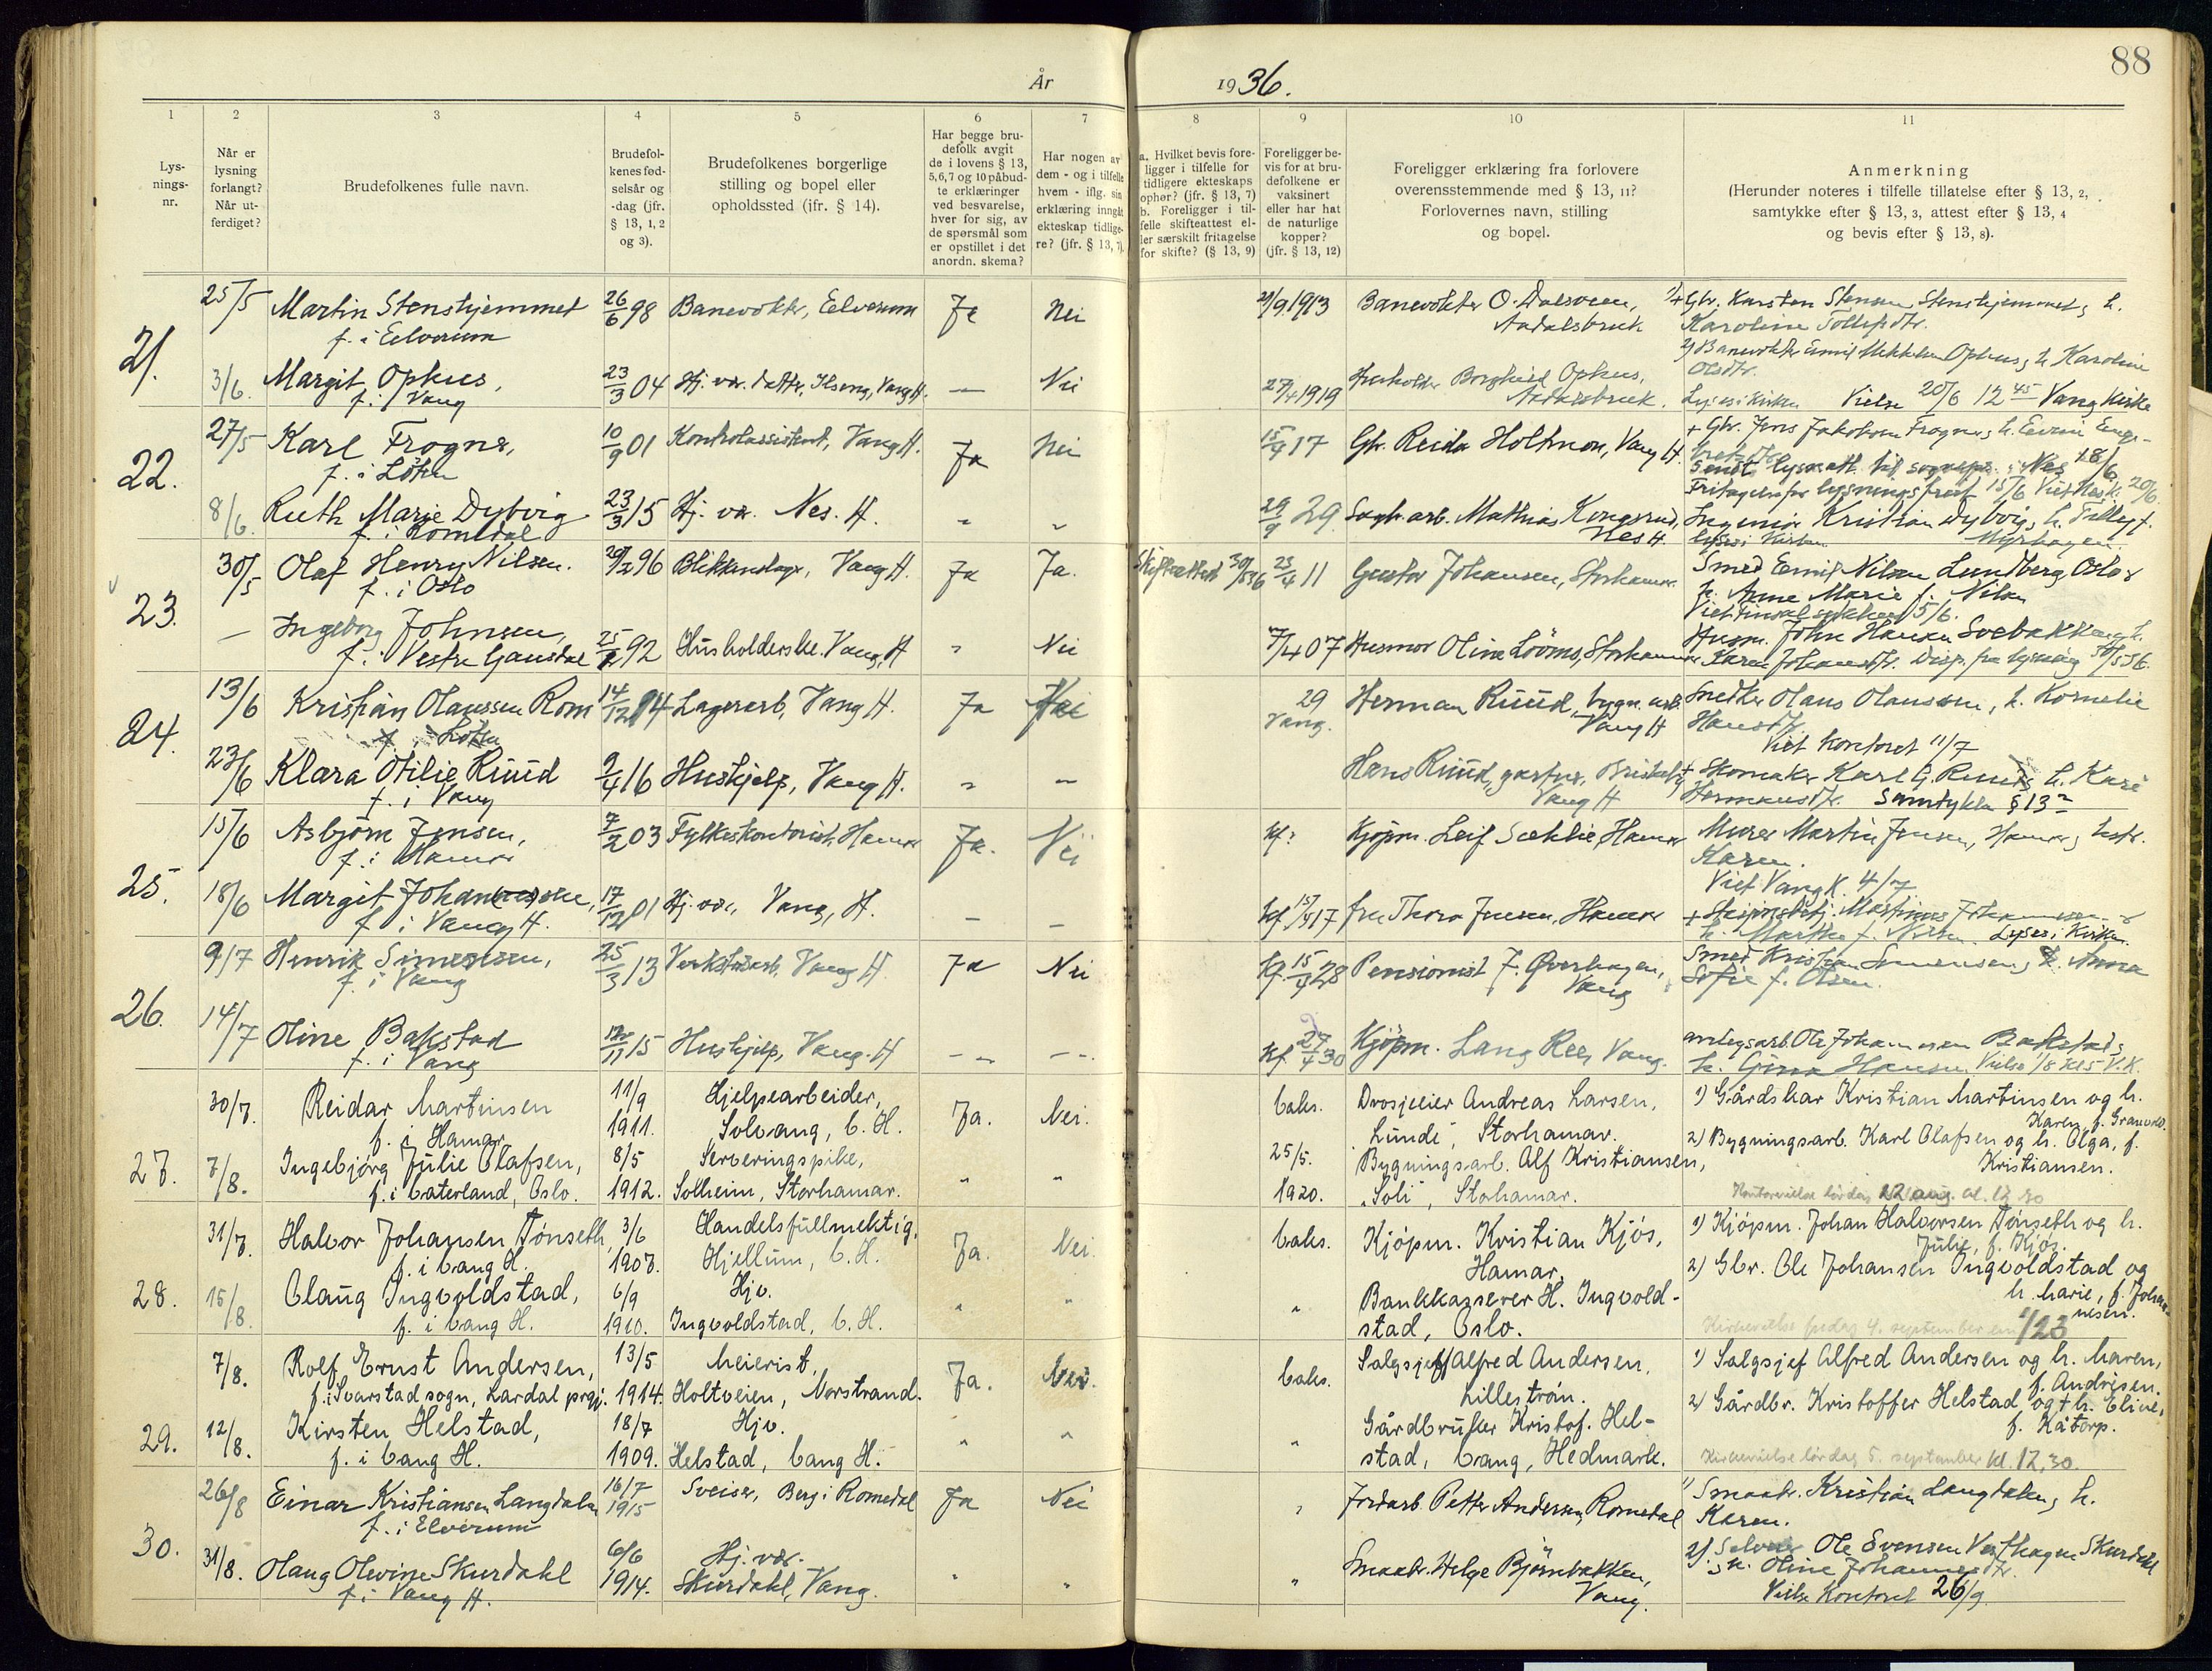 88
År 1936.
1 2 3 4 5 6 7 8 9 10 11
Lys-
nings-
nr.
Når er
lysning
forlangt?
Når ut-
ferdiget?
Brudefolkenes fulle navn.
Brudefol-
kenes fød-
selsår og
-dag (jfr.
§ 13, 1, 2
og 3).
Brudefolkenes borgerlige
stilling og bopel eller
opholdssted (jfr. § 14).
Har begge bru-
defolk avgit
de i lovens § 13,
5, 6, 7 og 10 påbud-
te erklæringer
ved besvarelse,
hver for sig, av
de spørsmål som
er opstillet i det
anordn. skema?
Har nogen av
dem - og i tilfelle
hvem - iflg. sin
erklæring inngåt
ekteskap tidlige-
re? (jfr. § 13, 7)
a. Hvilket bevis fore-
ligger i tilfelle for
tidligere ekteskaps
ophør? (jfr. § 13, 7)
b. Foreligger i til-
felle skifteattest el-
ler særskilt fritagelse
for skifte? (§ 13, 9)
Foreligger be-
vis for at bru-
defolkene er
vaksinert
eller har hat
de naturlige
kopper?
(jfr. § 13, 12)
Foreligger erklæring fra forlovere
overensstemmende med § 13, 11?
Forlovernes navn, stilling
og bopel.
Anmerkning
(Herunder noteres i tilfelle tillatelse efter § 13, 2,
samtykke efter § 13, 3, attest efter § 13, 4
og bevis efter § 13, 8).
21.
25/5 Martin Stenshjemmet 26/6 98 Banevokter, Elverum Ja Nei
f. i Elverum
21/9 1913 Banevokter O.
Aadalsbruk
Gbr. Karsten Stensen Stenshjemmet, h.
Karoline
3/6 Margit Ophus, 23/3 04 Hj. vær. datter, Ilseng, Vang H. — Nei
f. i Vang
27/4 1919 Borghild Ophus,
Aadalsbruk.
2) Banevokter Ophus, h. Karoline
Olsdtr.
Lyses i kirken Vielse 20/6 12 45 Vang Kirke
22.
27/5 Karl Frogner, 10/9 01 Kontrolassistent, Vang H. Ja Nei
f. i Löten
15/4 17 Gbr. Reidar Holtmon, Vang H.
+ Gbr. Jens Jakobsen Frogner, h.
Sendt lysn.att. til sognepr. i Nes 18/6
Fritagelse for lysningsfrist 15/6 Viet Nes k. 20/6
8/6 Ruth Marie Dybvig 23/3 15 Hj. vær. Nes. H. " "
f. i Romedal
29/9 29 Sagb.arb. Mathias Kongsrud,
Nes H.
Ingeniør Kristian Dybvig, h.
Lyses i Kirken
23.
30/5 Olaf Henry Nilsen. 29/2 96 Blikkenslager, Vang H. Ja Ja.
f. i Oslo
Skifteattest 30/5 36 23/4 11 Gustav Johansen, Storhamar.
Smed Emil Nilsen Lundberg, Oslo &
h. Anne Marie f. Nilsen
— Ingeborg Johnsen, 25/ 92 Husholderske. Vang, H " Nei
f. i Vestre Gausdal
7/4 07 Husmor Olina Löoms, Storhamar
Husm. John Hansen Svebakken, h.
Karen Johansdtr. Disp. fra lysning 30/5 36.
24.
13/6 Kristian Olaussen Rom 14/12 14 Lagerarb, Vang H. Ja Nei
f. i Löten
29
Vang.
Herman Ruud, bygn. arb.
Vang H
Snedker Olaus Olaussen, h. Kornelie
Hansdtr.
Viet kontoret 11/7
23/6 Klara Otilie Ruud 9/4 16 Hushjelp, Vang H. " —
f. i Vang
Hans Ruud, gartner,
Vang H
+ Skomaker Karl G. Ruud, h. Kari
Hermansdtr. Samtykke § 13 2
25.
15/6 Asbjörn Jensen, 7/2 03 Fylkeskontorist, Hamar Ja. Nei
f. i Hamar
kf. Kjøpm. Leif Sæhlie, Hamar
Murer Martin Jensen, Hamar, hstr.
Karen.
Viet Vang K. 4/7
18/6 Margit Johannessen, 17/12 01 Hj. vær, Vang, H. — —
f. i Vang H.
kf. 15/5 17 fru Thora Jensen, Hamar
h. Marthe f. Nilsen. Lyses i Kirken.
26.
9/7 Henrik Simensen, 25/3 13 Verkstedarb. Vang H Ja Nei
f. i Vang
kf. 15/9 28 Pensionist J. Øverhagen,
Vang
Smed Kristian Simensen, h. Anna
Sofie f. Olsen.
14/7 Oline Bakstad /11 15 Hushjelp, Vang. H — —
f. i Vang
kf. 27/4 30 Kjøpm. Lang Ree, Vang.
anlegsarb. Ole Johannesen Bakstad,
h. Gina Hansen. Vielse 1/8 kl 5 V.K.
27.
30/7. Reidar Martinsen 11/9 Hjelpearbeider, Ja. Nei.
f. i Hamar 1911. "Solvang, V. H.
Vaks. Drosjeeier Andreas Larsen,
"Lunde", Storhamar.
1) Gårdskar Kristian Martinsen og h.
Karen f. Granvold.
7/8. Ingebjörg Julie Olafsen, 8/5 Serveringspike, " "
f. i Vaterland, Oslo. 1912. Solheim, Storhamar.
25/5. Bygningsarb. Alf Kristiansen,
1920. "Soli", Storhamar.
2) Bygningsarb. Karl Olafsen og h. Olga, f.
Kristiansen.
Kontorvielse lördag 22 aug. kl. 12 30
28.
31/7. Halvor Johansen Tönseth, 3/6 Handelsfullmektig. Ja. Nei.
f. i Vang H. 1907. Hjellum, V. H.
Vaks. Kjöpm. Kristian Kjös,
Hamar
1) Kjöpm. Johan Halvorsen Tönseth og h.
Julie, f. Kjös.
15/8. Olaug Ingvoldstad, 6/9 Hjv. " "
f. i Vang H. 1910. Ingvoldstad, V. H.
" Bankkasserer H. Ingvold-
stad, Oslo.
2) Gbr. Ole Johansen Ingvoldstad og
h. Marie, f. Johan-
nesen.
Kirkevielse fredag 4. september
29.
7/8. Rolf Ernst Andersen, 13/5 Meierist, Ja. Nei.
f. i Svarstad sogn, Lardal prgj. 1914. Holtveien, Norstrand.
Vaks. Salgsjef Alfred Andersen,
Lilleström.
1) Salgsjef Alfred Andersen og h. Maren,
f. Andrisen.
12/8. Kirsten Helstad, 18/7 Hjv. " "
f. i Vang H. 1909. Helstad, Vang H.
" Gårdbruker Kristof. Hel-
stad, Vang, Hedmark.
2) Gårdbr. Kristoffer Helstad og h. Eline,
f. Kåtorp.
Kirkevielse lördag 5. september kl. 12,30.
30.
26/8 Einar Kristiansen Langdalen 16/7 Sveiser, Berg i Romedal Ja Nei
f. i Elverum 1915
" Jordarb. Petter Andersen, Romedal
1) Smaabr. Kristian Langdalen, h.
Karen.
31/8. Olaug Olevine Skurdahl 6/6 Hj. vær. " "
f. i Vang H. 1914. Skurdahl, Vang.
" Smaabr. Helge Björnbakken,
Vang.
2) Ole Evensen Skurdahl
h. Oline Johannesdtr.
Vielse Kontoret 26/9